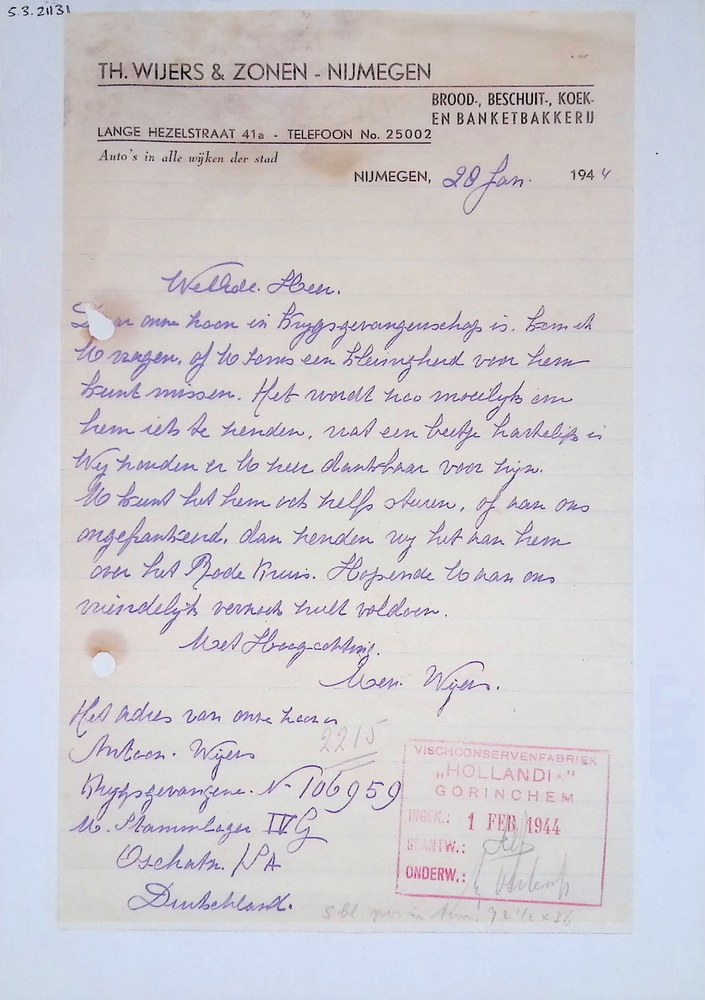 5.3.21131
TH. WIJERS & ZONEN - NIJMEGEN
BROOD-, BESCHUIT-, KOEK-
EN BANKETBAKKERIJ
LANGE HEZELSTRAAT 41a - TELEFOON No. 25002
Auto's in alle wijken der stad
NIJMEGEN, 28 Jan. 1944
WelEde. Heer.
Daar onze zoon in Krijgsgevangenschap is. kom ik
U vragen, of U soms een kleinigheid voor hem
kunt missen. Het wordt zoo moeilijk om
hem iets te zenden, wat een beetje hartelijk is
Wij zouden er U zeer dankbaar voor zijn.
U kunt het hem ook zelfs sturen, of aan ons
ongefrankeerd, dan zenden wij het aan hem
over het Roode Kruis. Hopende U aan ons
vriendelijk verzoek zult voldoen.
Met Hoogachting.
Mevr. Wijers.
Het adres van onze zoon is
Antoon. Wijers
2215
Krijgsgevangene. Nr 106959
M. Stammlager IV G
Oschatz. /SA
Deutschland.
VISCHCONSERVENFABRIEK
„HOLLANDIA"
GORINCHEM
INGEK.: 1 FEB 1944
BEANTW.:
ONDERW.: